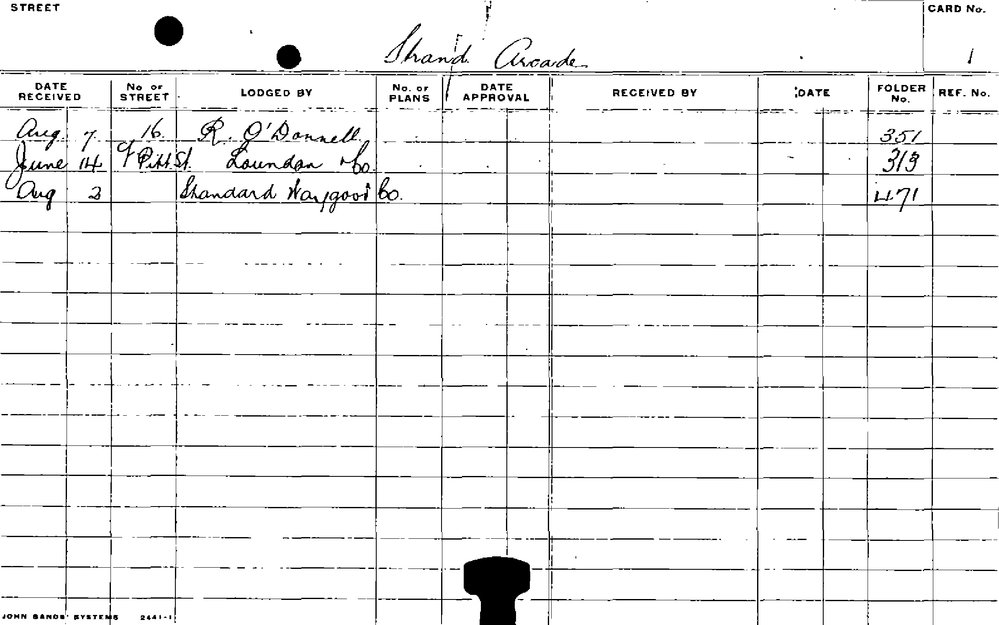 STREET
CARD No.
Strand Arcade
1
DATE RECEIVED No OF STREET LODGED BY No. OF PLANS DATE APPROVAL RECEIVED BY DATE FOLDER No. REF. No.
Aug. 7. 16. R. O'Donnell. 351
June 14 Pitt St. Loundon & Co. 313
Aug 2 Standard Waygood Co. 471
JOHN SANDS' SYSTEMS 2441-1